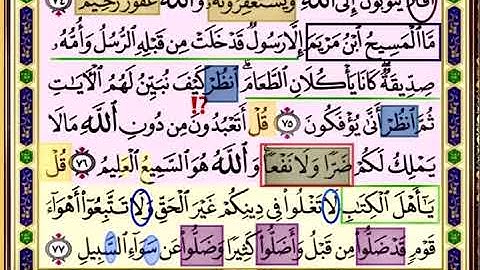 أَفَلَا يَتُوبُونَ إِلَى ٱللَّهِ وَيَسْتَغْفِرُونَهُۥ وَٱللَّهُ غَفُورٌ رَّحِيمٌ ٧٤
مَّا ٱلْمَسِيحُ ٱبْنُ مَرْيَمَ إِلَّا رَسُولٌ قَدْ خَلَتْ مِن قَبْلِهِ ٱلرُّسُلُ وَأُمُّهُۥ
صِدِّيقَةٌ ۖ كَانَا يَأْكُلَانِ ٱلطَّعَامَ ۗ ٱنظُرْ كَيْفَ نُبَيِّنُ لَهُمُ ٱلْءَايَٰتِ
!?
ثُمَّ ٱنظُرْ أَنَّىٰ يُؤْفَكُونَ ٧٥ قُلْ أَتَعْبُدُونَ مِن دُونِ ٱللَّهِ مَا لَا
يَمْلِكُ لَكُمْ ضَرًّا وَلَا نَفْعًا ۚ وَٱللَّهُ هُوَ ٱلسَّمِيعُ ٱلْعَلِيمُ ٧٦ قُلْ
يَٰٓأَهْلَ ٱلْكِتَٰبِ لَا تَغْلُوا۟ فِى دِينِكُمْ غَيْرَ ٱلْحَقِّ وَلَا تَتَّبِعُوٓا۟ أَهْوَآءَ
قَوْمٍ قَدْ ضَلُّوا۟ مِن قَبْلُ وَأَضَلُّوا۟ كَثِيرًا وَضَلُّوا۟ عَن سَوَآءِ ٱلسَّبِيلِ ٧٧